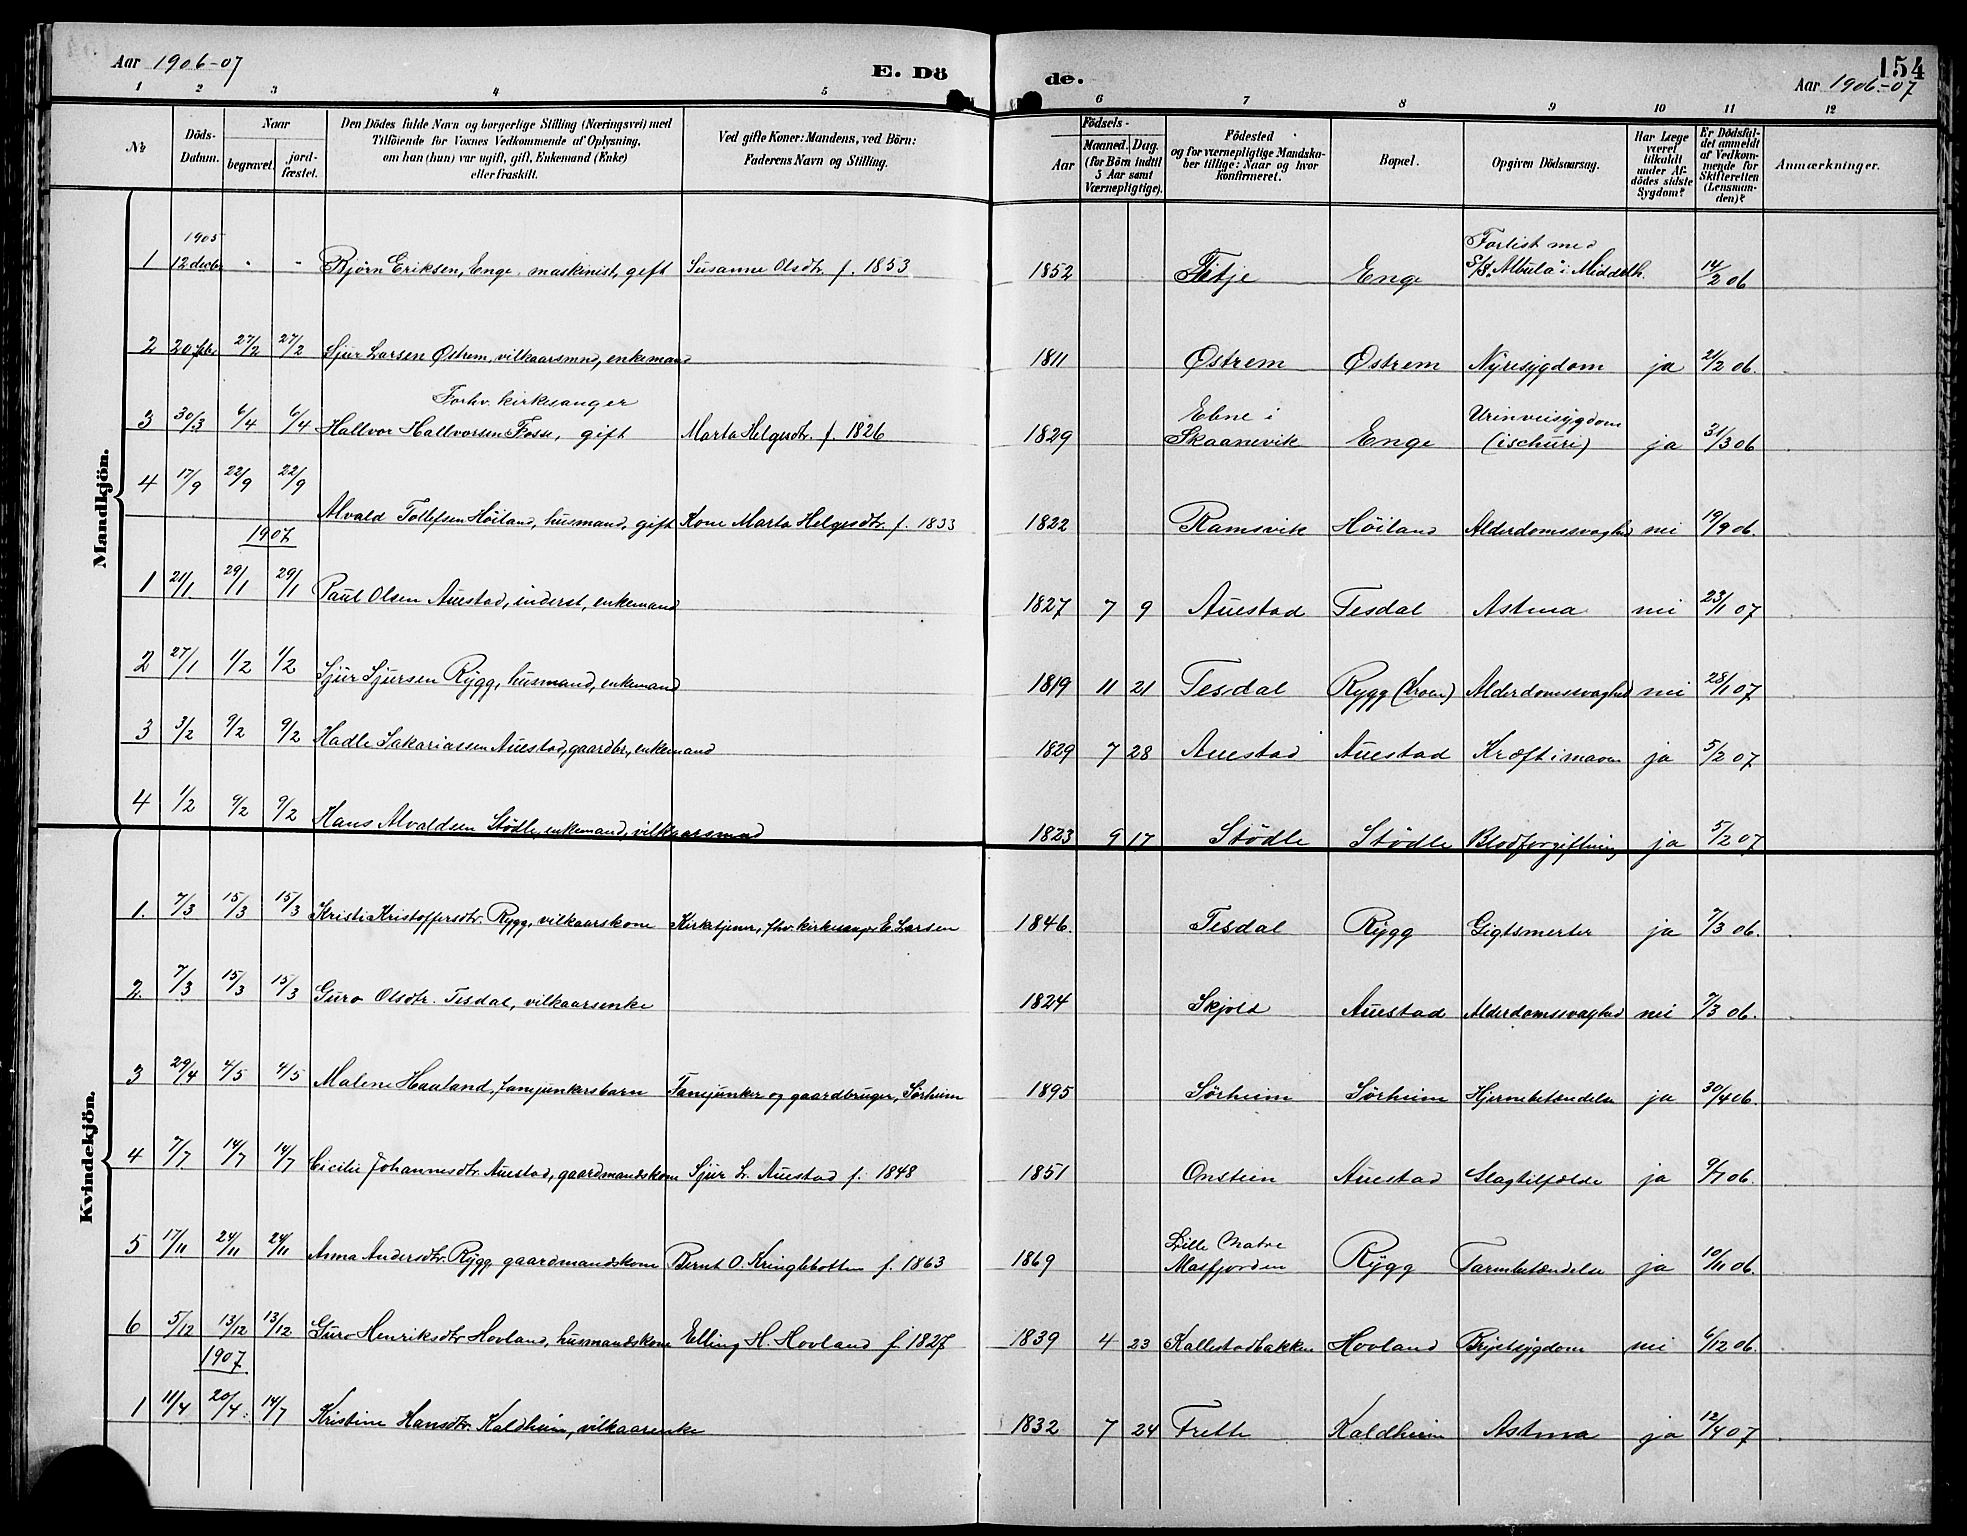 Aar 1906-07
E. Dö
de.
154
Aar 1906-07
1 2 3 4 5 6 7 8 9 10 11 12
No
Döds-Datum.
Naar
begravet.
jord-fæstet.
Den Dödes fulde Navn og borgerlige Stilling (Næringsvei) med
Tilföiende for Voxnes Vedkommende af Oplysning,
om han (hun) var ugift, gift, Enkemand (Enke)
eller fraskilt.
Ved gifte Koner: Mandens, ved Börn:
Faderens Navn og Stilling.
Födsels-
Aar
Maaned. Dag.
(for Börn indtil
5 Aar samt
Værnepligtige).
Födested
og for værnepligtige Mandska-
ber tillige: Naar og hvor
konfirmeret.
Bopæl.
Opgiven Dödsaarsag.
Har Læge
været
tilkaldt
under Af-
dödes sidste
Sygdom?
Er Dödsfal-
det anmeldt
af Vedkom-
mende for
Skifteretten
(Lensman-
den)?
Anmærkninger.
Mandkjön.
1905
1 12 decbr " " Bjørn Eriksen, Enge, maskinist, gift Susanne Olsdtr. f. 1853 1852 Fitje Enge Forlist med S/S "Albula" i Middelh. 14/2 06
2 20 febr. 27/2 27/2 Sjur Larsen Østrem, vilkaarsmnd, enkemand 1811 Østrem Østrem Nyresygdom ja 21/2 06.
Forhv. kirkesanger
3 30/3 6/4 6/4 Hallvor Hallvorsen Fosse, gift Marta Helgesdtr. f. 1826 1829 Ebne i Skaanevik Enge Urinveisygdom (ischuri) ja 31/3 06
4 17/9 22/9 22/9 Alvald Tollefsen Høiland, husmand, gift Kone Marta Helgesdtr. f. 1833 1822 Ramsvik Høiland Alderdomssvaghed nei 19/9 06.
1907
1 21/1 29/1 29/1 Paul Olsen Auestad, inderst, enkemand 1827 7 9 Auestad Tesdal Astma nei 23/1 07
2 27/1 1/2 1/2 Sjur Sjursen Rygg, husmand, enkemand 1819 11 21 Tesdal Rygg (Kroen) Alderdomssvaghed nei 28/1 07
3 3/2 9/2 9/2 Hadle Sakariassen Auestad, gaardbr., enkemand 1829 7 28 Auestad Auestad Kræft i maven ja 5/2 07
4 1/2 9/2 9/2 Hans Alvaldsen Stødle, enkemand, vilkaarsmnd 1823 9 17 Stødle Stødle Blodforgiftning ja 5/2 07
Kvindekjön.
1. 7/3 15/3 15/3 Kristi Kristoffersdtr. Rygg, vilkaarskone Kirketjener, fhv. kirkesanger E. Larsen 1846. Tesdal Rygg Gigtsmerter ja 7/3 06.
2. 7/3 15/3 15/3 Guro Olsdtr. Tesdal, vilkaarsenke 1824 Skjold Auestad Alderdomssvaghed nei 7/3 06.
3 29/4 4/5 4/5 Malene Haaland, fanejunkersbarn Fanejunker og gaardbruger, Sørheim 1895 Sørheim Sørheim Hjernebetændelse ja 30/4 06.
4 7/7 14/7 14/7 Cicilie Johannesdtr. Auestad, gaardmandskone Sjur L. Auestad f. 1848 1851 Onstein Auestad Slagtilfælde ja 9/7 06.
5 17/11 24/11 24/11 Anna Andersdtr. Rygg gaardmandskone Bernt O. Kringlebotten f. 1863 1869 Lille Matre Masfjorden Rygg Tarmbetændelse ja 10/11 06.
6 5/12 13/12 13/12 Guro Henriksdtr Hovland, husmandskone Elling H. Hovland f. 1827 1839 4 23 Kallestadbakken Hovland Brystsygdom nei 6/12 06.
1907
1 11/4 20/4 14/7 Kristine Hansdtr. Kaldheim, vilkaarsenke 1832 7 24 Frette Kaldheim Astma ja 12/4 07